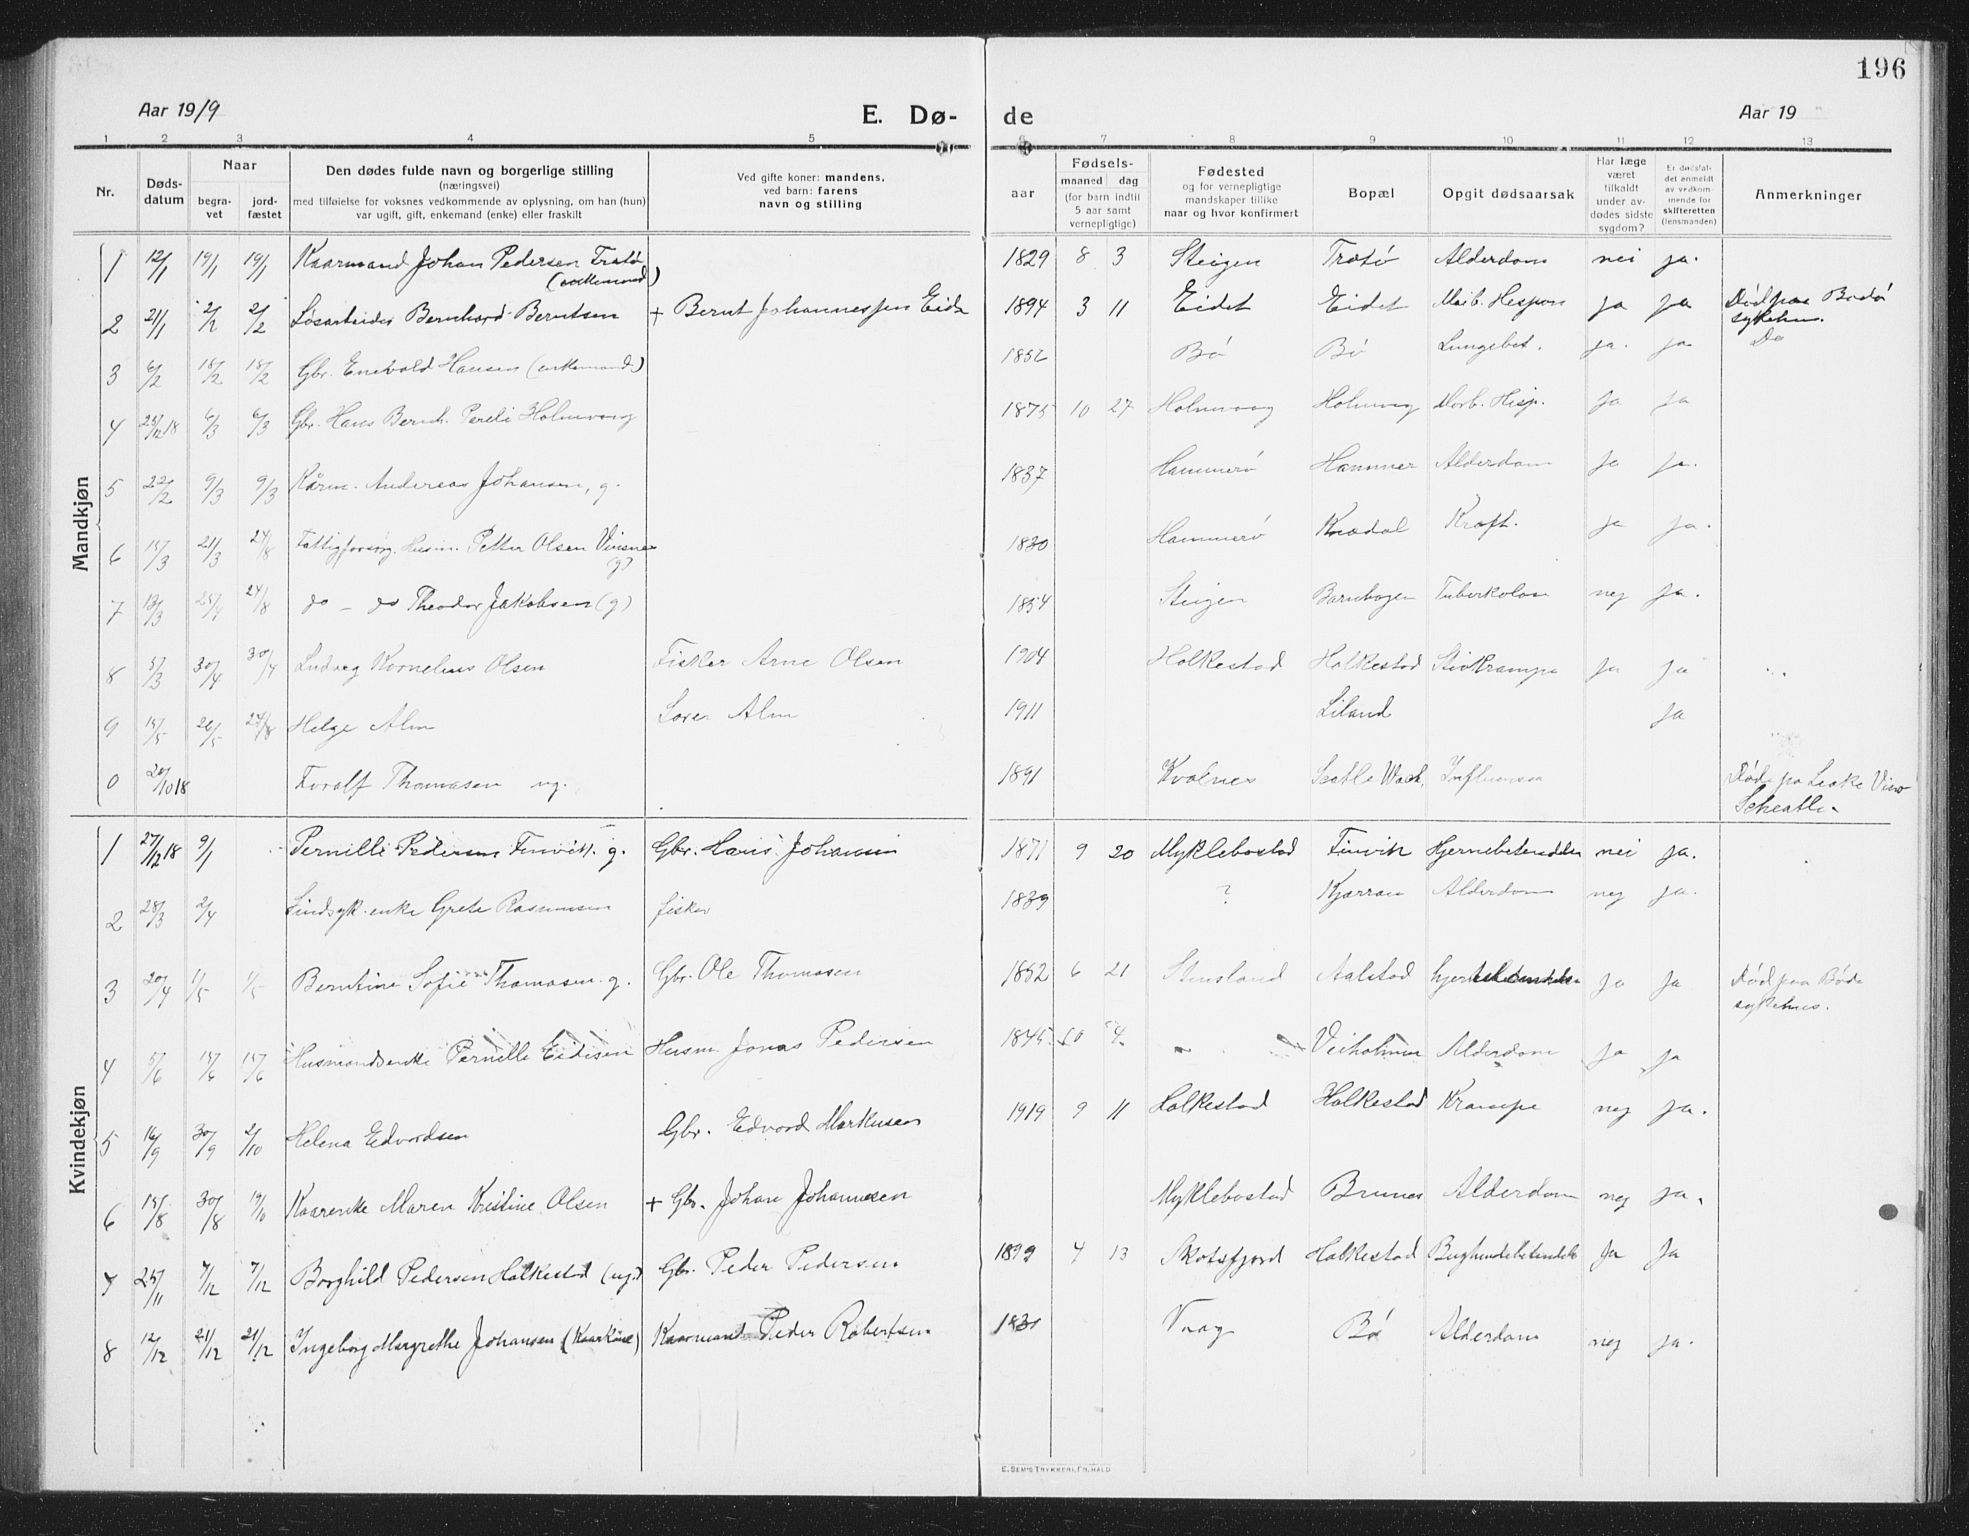 196
Aar 19/9 E. Dø- de Aar 19
1 2 3 4 5 6 7 8 9 10 11 12 13
Nr. Døds-datum Naar begra-vet jord-fæstet Den dødes fulde navn og borgerlige stilling (næringsvei) med tilføielse for voksnes vedkommende av oplysning, om han (hun) var ugift, gift, enkemand (enke) eller fraskilt Ved gifte koner: mandens, ved barn: farens navn og stilling Fødsels- aar maaned dag (for barn indtil 5 aar samt vernepligtige) Fødested og for vernepligtige mandskaper tillike naar og hvor konfirmert Bopæl Opgit dødsaarsak Har læge været tilkaldt under av-dødes sidste sygdom? Er dødsfal-det anmeldt av vedkom-mende for skifteretten (lensmanden) Anmerkninger
Mandkjøn
1 12/1 19/1 19/1 Kaarmand Johan Pedersen 1829 8 3 Steigen Alderdom nei ja.
2 21/1 2/2 Løsarbeider Bernhard Berntsen + Bernt Johannessen 1894 3 11 Eidet Eidet ja ja Død paa Bodø sykehus.
3 6/2 18/2 18/2 Gbr. Enevold Hansen (enkemand) 1852 Bø Bø Lungebet. ja. ja Do
4 25/12 18 6/3 6/3 Gbr. Hans Bernh. Holmvaag 1875 10 27 Holmvaag Holmvag ja ja
5 22/2 9/3 9/3 Kårm. Andreas Johansen, g. 1837 Hammerø Hammer Alderdom ja ja.
6 15/3 21/3 24/8 Fattigforsørg. Husm. Petter Olsen (g) 1830 Hammerø Kræft. ja ja.
7 13/3 25/4 24/8 do — do Theodor Jakobsen (g) 1854 Steigen Barnhagen Tuberkolose nej ja.
8 5/3 30/4 30/4 Ludvig Kornelius Olsen Fisker Arne Olsen 1904 Holkestad Holkestad Stivkrampe ja ja
9 15/5 26/5 24/8 Helge Alm Alm 1911 Liland ja
0 20/10 18 Toralf Thomasen ug. 1891 Kvalnes Influensa
Kvindekjøn
1 27/12 18 9/1 Pernille Pedersen Finvik. g. Gbr. Hans Johansen 1871 9 20 Myklebostad Finvik nei ja.
2 28/3 2/4 Sindsyk enke Grete Rasmussen fisker 1839 ? Kjærran Alderdom nej ja.
3 20/4 1/5 1/5 Berntine Sofie Thomasen. g. Gbr. Ole Thomasen 1852 6 21 Stensland Aalstad ja ja Død paa Bodø sykehus.
4 5/6 15/6 15/6 Husmandsenke Pernille Husm. Jonas Pedersen 1845 10 4 Veiholmen Alderdom ja ja
5 16/9 30/9 2/10 Helena Edvardsen Gbr. Edvard Markusen 1919 9 11 Holkestad Holkestad Krampe nej ja.
6 15/8 30/8 19/10 Kaarenke Maren Kristine Olsen + Gbr. Johan Johannesen Myklebostad Brunes Alderdom nej ja.
7 25/11 7/12 7/12 Borghild Pedersen Holkestad (ug.) Gbr. Peder Pedersen 1899 4 13 Skotsfjord Holkestad Bughindebetendelse Ja Ja
8 12/12 21/12 21/12 Ingeborg Margrethe Johansen Kaarmand Peder Robertsen Vaag Bø Alderdom nej ja.
E. SEM'S TRYKKERI, FR. HALD